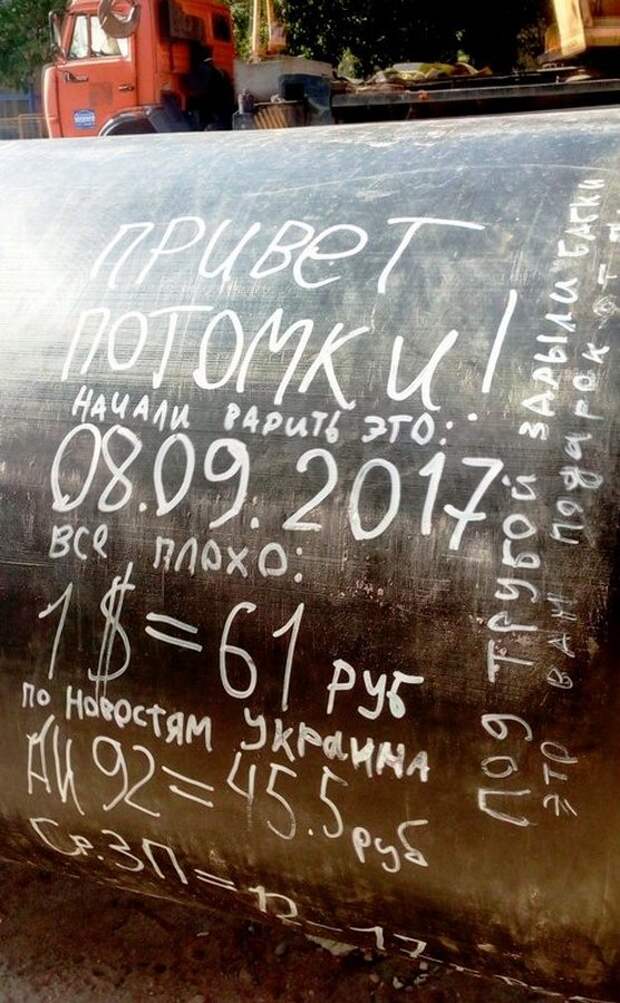 ПРИВЕТ
ПОТОМКИ!
НАЧАЛИ ВАРИТЬ ЭТО:
08.09.2017
ВСЕ ПЛОХО:
1$=61 РУБ
ПО НОВОСТЯМ УКРАИНА
АИ 92=45.5 руб
Ср.ЗП=
ПОД ТРУБОЙ ЗАРЫЛИ БАГКИ
ЭТО ВАМ ПОДАРОК ОТ